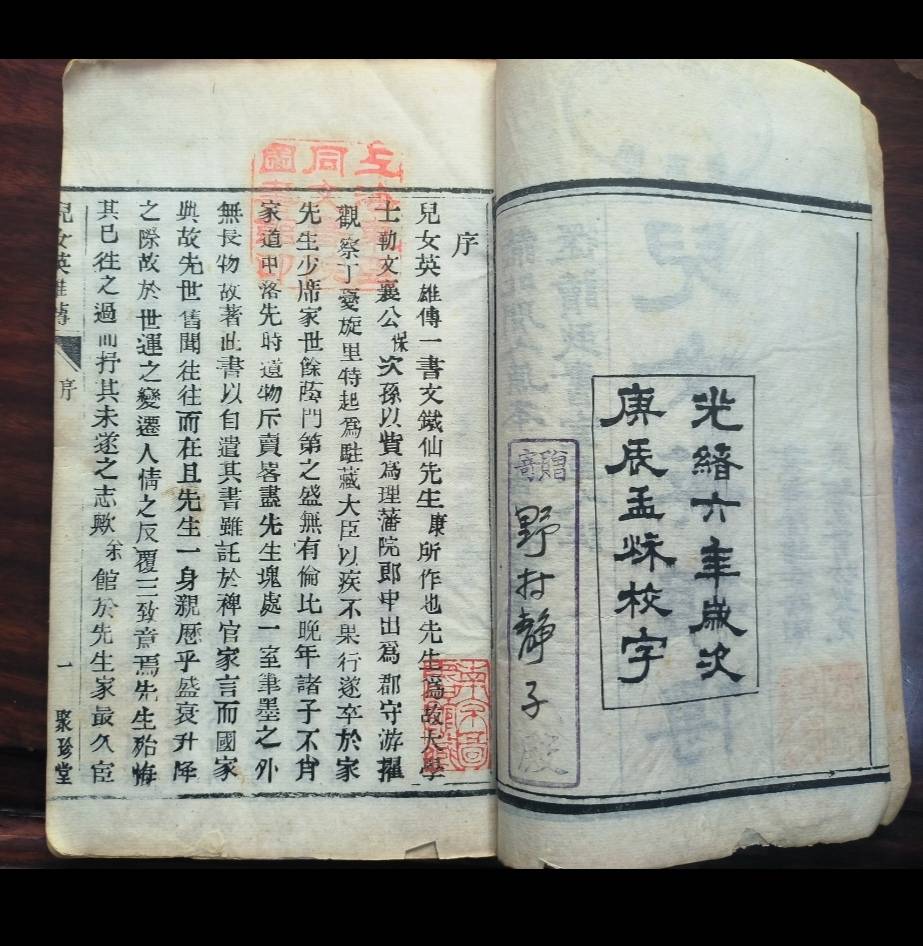 光緒六年歲次
庚辰孟秌校字
寄贈
野村靜子殿
序
兒女英雄傳一書文鐵仙先生康所作也先生爲故大學
士勒文襄公保次孫以貲爲理藩院郎中出爲郡守游擢
觀察丁憂旋里特起爲駐藏大臣以疾不果行遂卒於家
先生少席家世餘蔭門第之盛無有倫比晚年諸子不肖
家道中落先時遺物斥賣畧盡先生塊處一室筆墨之外
無長物故著此書以自遣其書雖託於稗官家言而國家
典故先世舊聞往往而在且先生一身親歷乎盛衰升降
之際故於世運之變遷人情之反覆三致意焉先生殆悔
其已往之過而抒其未遂之志歟余館於先生家最久宦
兒女英雄傳
序
一
聚珍堂